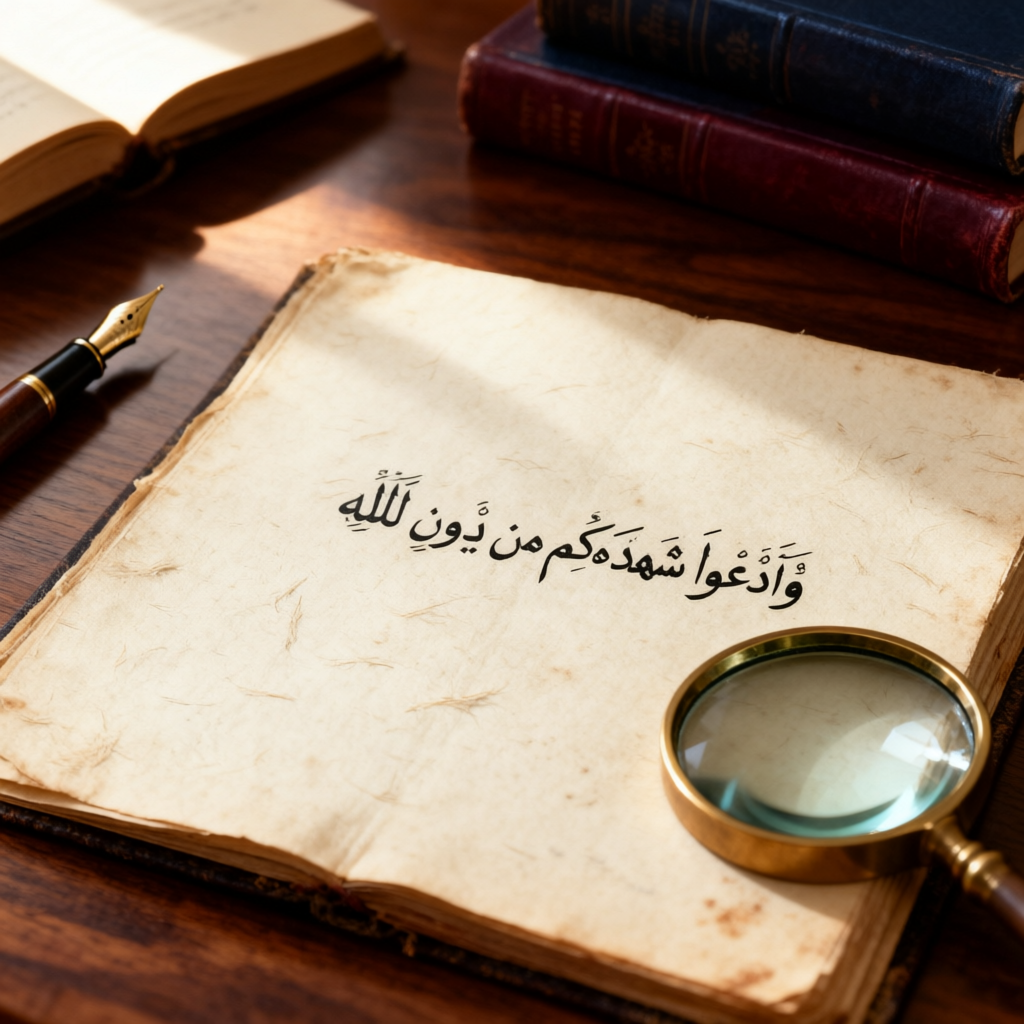 وَّأَدَّعْواَ شَهدَهكُِم من دِّونِ لَللَّهِ